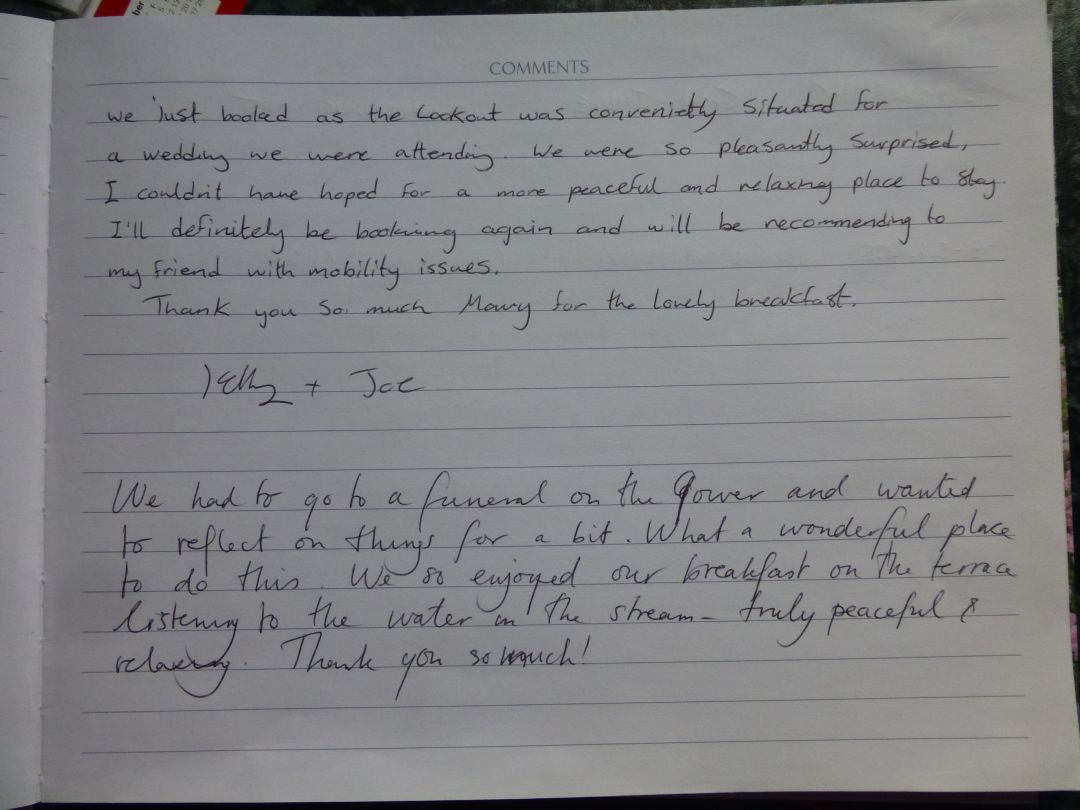 COMMENTS
we just booked as the Lookout was convenietly situated for
a wedding we were attending. We were so pleasantly surprised,
I couldn't have hoped for a more peaceful and relaxing place to stay.
I'll definitely be booking again and will be recommending to
my friend with mobility issues.
Thank you so much for the lovely breakfast.
+ Joe
We had to go to a funeral on the Gower and wanted
to reflect on things for a bit. What a wonderful place
to do this. We so enjoyed our breakfast on the terrace
listening to the water in the stream - truly peaceful &
relaxing. Thank you so much!